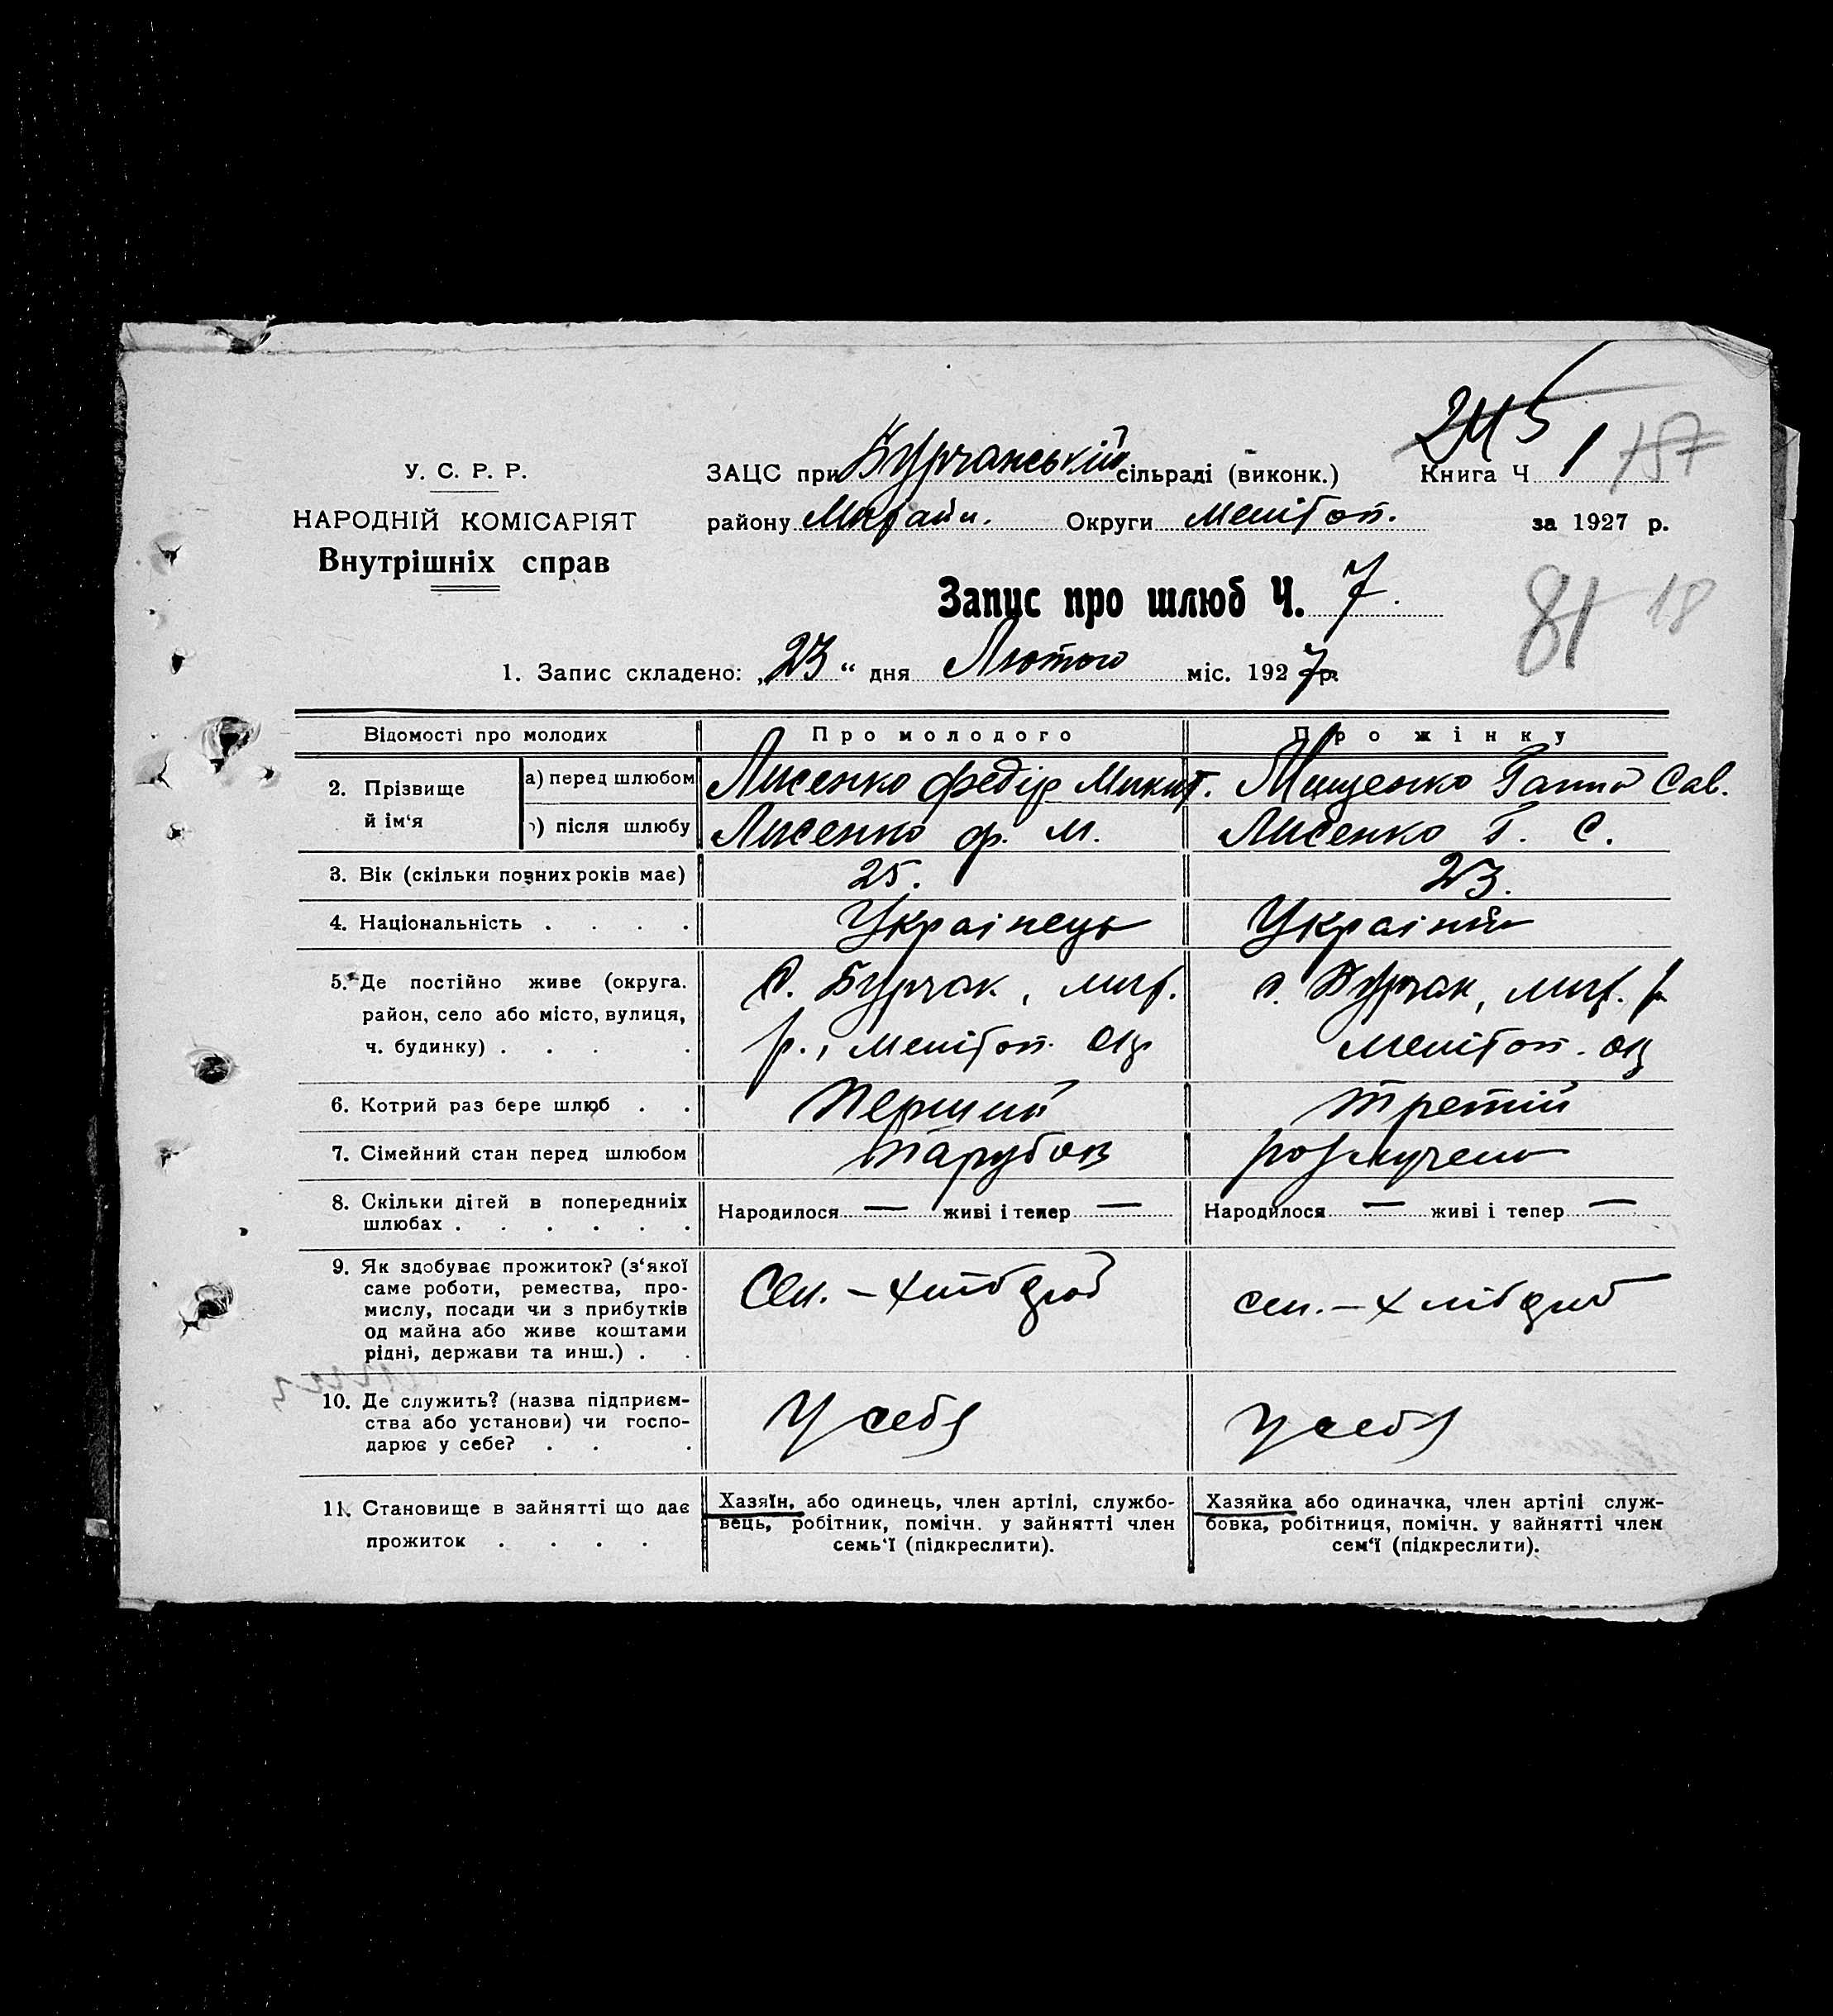 245
У. С. Р. Р.
НАРОДНІЙ КОМІСАРІЯТ
Внутрішніх справ
ЗАЦС при Бурчанській сільраді (виконк.)
Книга Ч 1 157
району Михайл. Округи Меліт оп. за 1927 р.
Запис про шлюб Ч. 7.
81 18
1. Запис складено: „23“ дня Лютого міс. 1927 р.
Відомості про молодих Про молодого Про жінку
2. Прізвище й ім‘я
а) перед шлюбом Лисенко Федір Микит. Мищенко Ганна Сав.
б) після шлюбу Лисенко Ф. М. Лисенко Г. С.
3. Вік (скільки повних років має) 25. 23.
4. Національність . . . . Українець Україн
5. Де постійно живе (округа. район, село або місто, вулиця, ч. будинку) . . . .
С. Бурчак, мих. с. Бурчак, мих. р.
р., Мелітоп. окр Мелітоп. окр
6. Котрий раз бере шлюб . . Перший третій
7. Сімейний стан перед шлюбом Парубок розлучена
8. Скільки дітей в попередниіх шлюбах . . . . . .
Народилося — живі і тепер — Народилося — живі і тепер —
9. Як здобуває прожиток? (з‘якої
саме роботи, ремества, про-
мислу, посади чи з прибутків
од майна або живе коштами
рідні, держави та инш.) . .
Сел. – хлібороб сел. – хлібороб
10. Де служить? (назва підприєм-
ства або установи) чи госпо-
дарює у себе? . . .
У себя У себя
11. Становище в зайнятті що дає
прожиток . . . .
Хазяїн, або одинець, член артілі, службо-
вець, робітник, помічн. у зайнятті член
семь‘ї (підкреслити).
Хазяйка або одиначка, член артілі служ-
бовка, робітниця, помічн. у зайнятті член
сем‘ї (підкреслити).